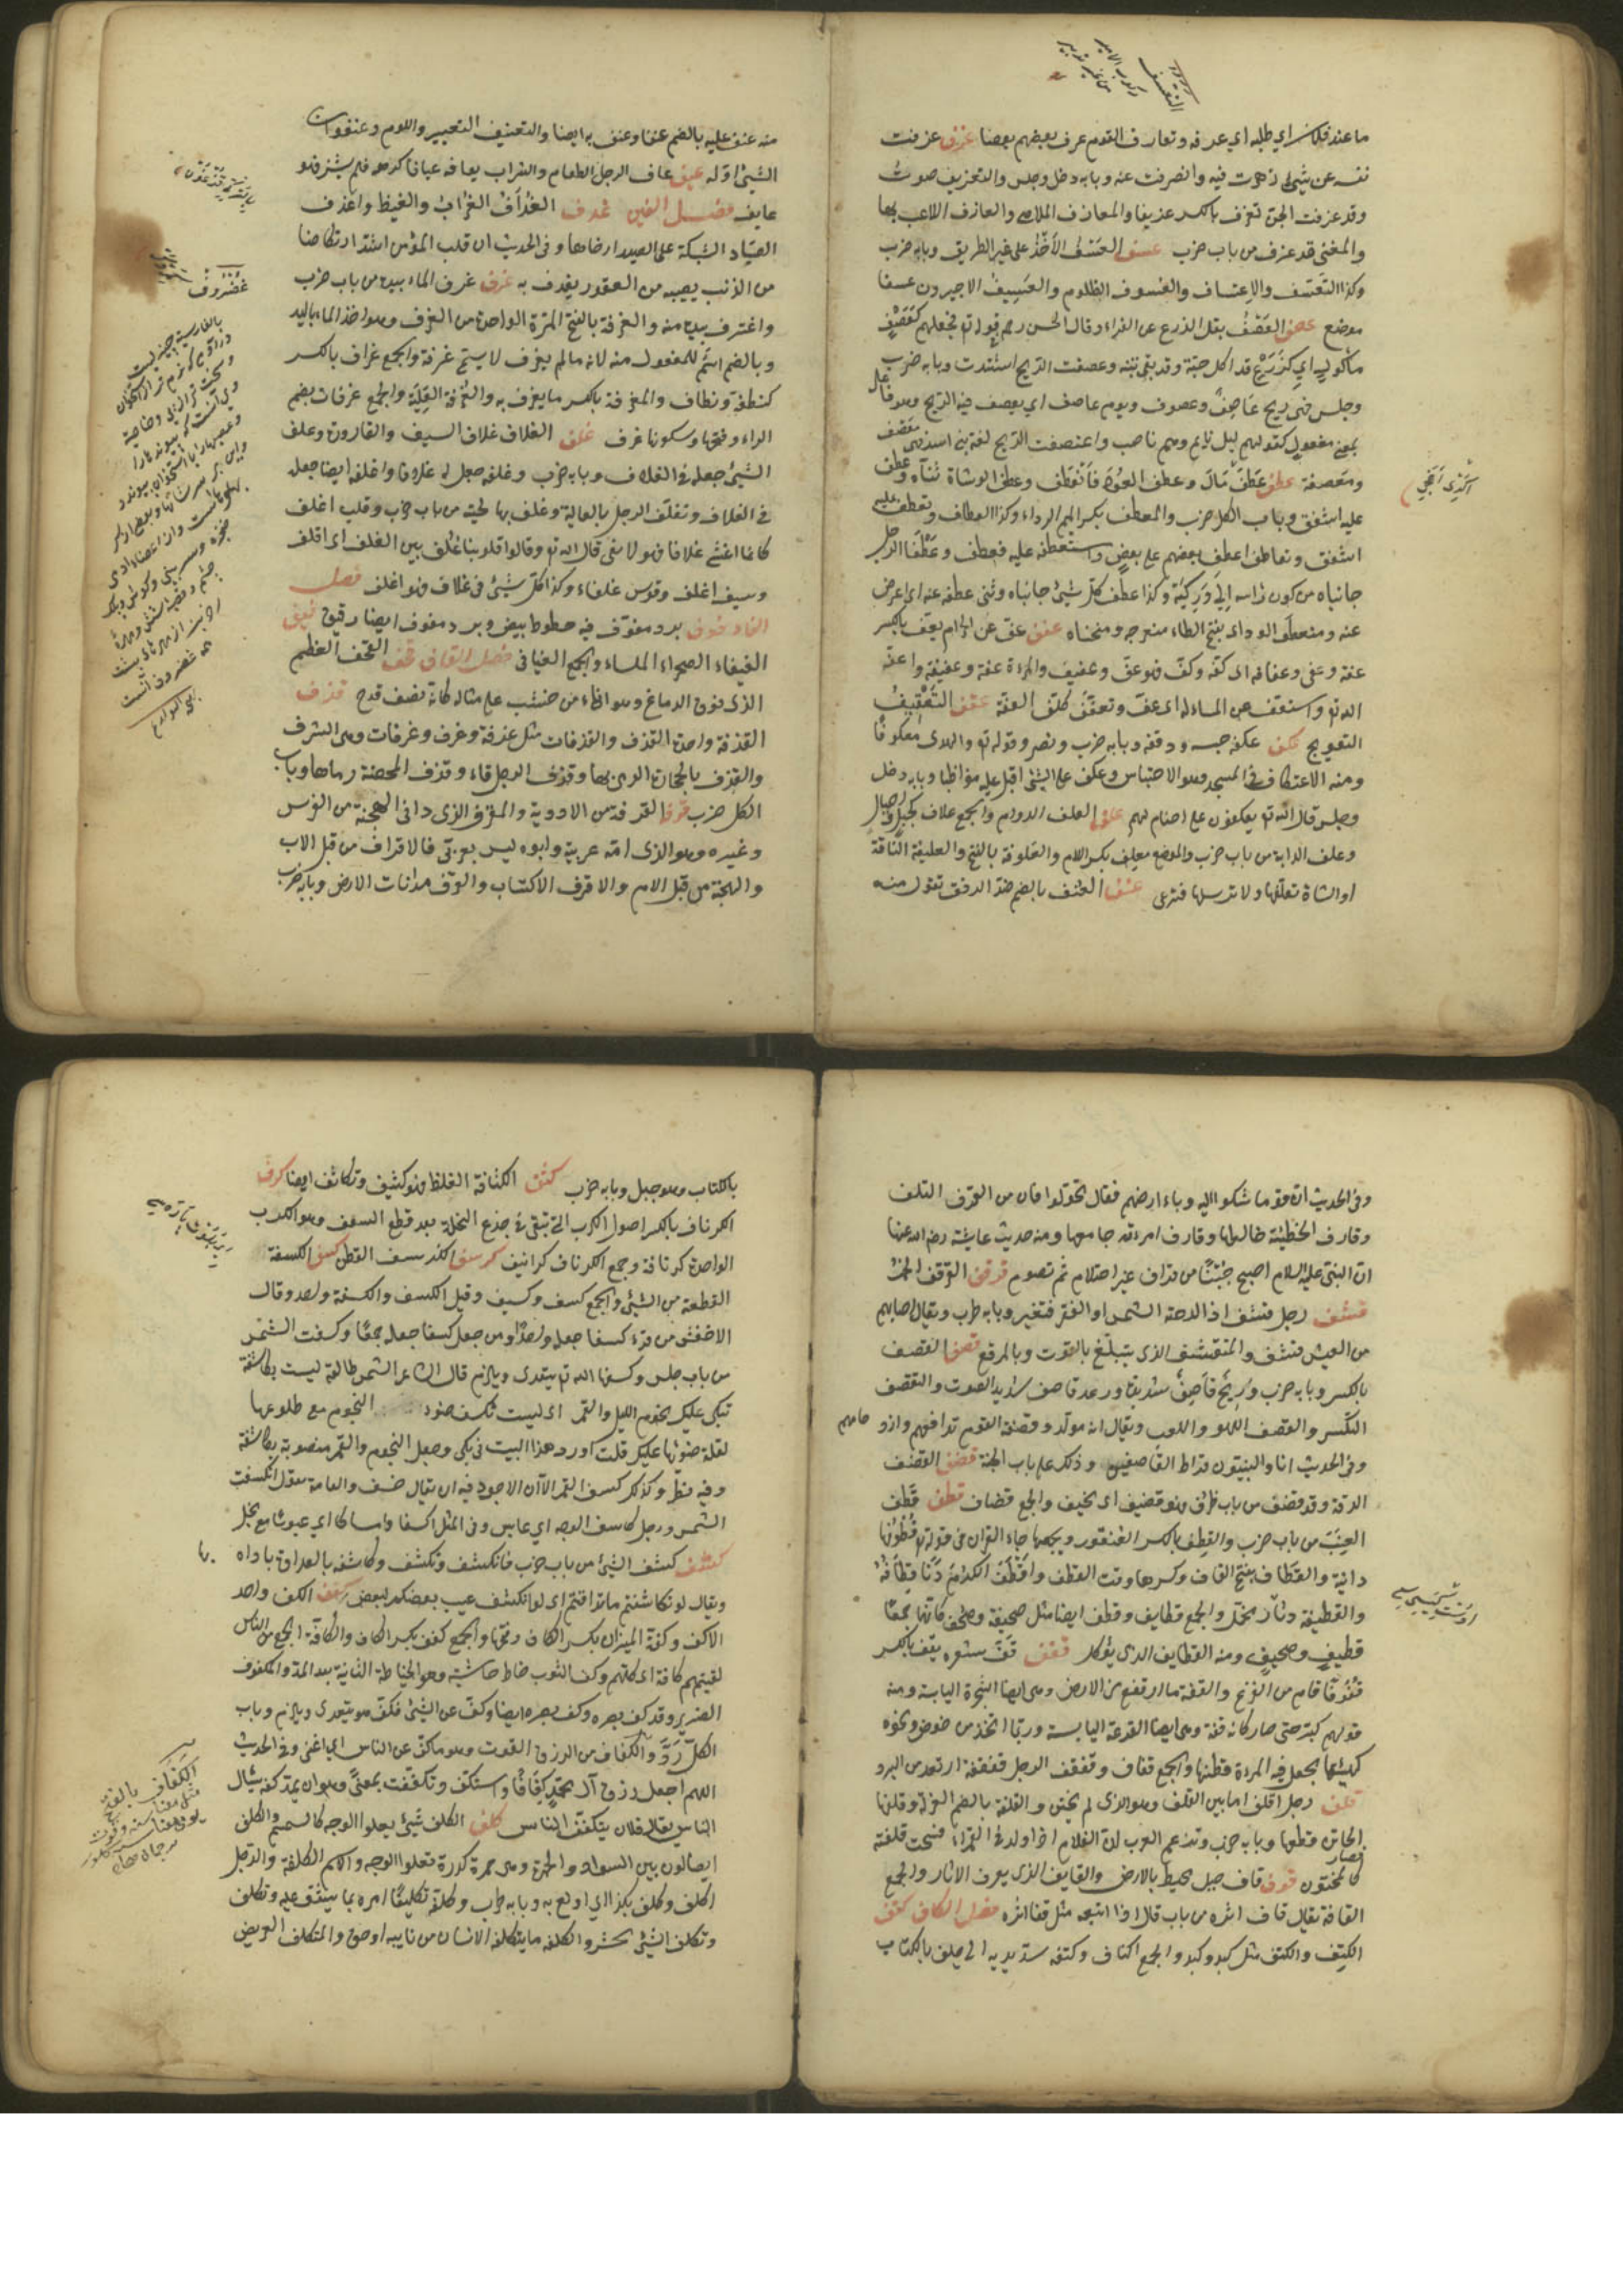 ما عند فلان اي طلبه اي عرفه وتعارف القوم عرف بعضهم بعضا عزف عزفت
نفسه عن شيئ زهدت فيه وانصرفت عنه وبابه دخل وجلس والعزيف صوت
وقد عزفت الجن تعزف بالكسر عزيفا والمعازف الملاهي والعازف اللاعب بها
والمغني قد عزف من باب ضرب عسف العسف الأخذ على غير الطريق وبابه ضرب
وكذا التعسف والاعتساف والعسوف الظلوم والعسيف الاجير
موضع عصف العصف بقل الزرع عن الفراء وقال الحسن في قوله تع فجعلهم كعصف
مأكول اي كزرع قد اكل حبه وقد بقي تبنه وعصفت الريح اشتدت وبابه ضرب
وجلس فهي ريح عاصف وعصوف ويوم عاصف اي يعصف فيه الريح وهو فاعل
بمعنى مفعول كقولهم ليل نايم وهم ناصب واعصفت الريح لغة بني اسد فهي معصف
ومعصفة عطف عطف مال وعطف العود فانعطف وعطف الوسادة ثناه وعطف
عليه اشفق وباب الكل ضرب والمعطف بكسر الميم الرداء وكذا العطاف وتعطف عليه
اشفق وتعاطفوا عطف بعضهم على بعض واستعطفه عليه فعطف وعطفا الرجل
جانباه من كون راسه الى وركيه وكذا عطف كل شيئ جانباه وثنى عطفه عنه اي اعرض
عنه ومنعطف الوادي بفتح الطاء منعرجه ومنحناه عفف عف عن الحرام يعف بالكسر
عفة وعف وعفافة اي كف وكف فهو عف وعفيف والمرءة عفة وعفيفة واعفه
الله تع واستعفف عن المسألة اي عف وتعفف تكلف العفة عقف التعقيف
التعويج عكف عكفه حبسه ووقفه وبابه ضرب ونصر وقوله تع والهدى معكوفا
ومنه الاعتكاف في المسجد وهو الاحتباس وعكف على الشيئ اقبل عليه مواظبا وبابه دخل
وجلس قال الله تع يعكفون على اصنام لهم علف العلف للدواب والجمع علاف كجبل وجبال
وعلف الدابة من باب ضرب والموضع معلف بكسر الميم والعلوفة بالفتح والعليفة الناقة
او الشاة تعلفها ولا ترسلها فترعى عنف العنف بالضم ضد الرفق تقول منه
منه عنف عليه بالضم عنفا وعنف به ايضا والتعنيف التعيير واللوم وعنفوان
الشيئ اوله عيف عاف الرجل الطعام والشراب يعافه عيافا كرهه فلم يشربه فهو
عايف فصل الغين غدف الغداف الغراب والغيظ واغدف
الصياد الشبكة على الصيد ارخاها وفي الحديث ان قلب المؤمن اشد ارتكاضا
من الذنب يصيبه من العصفور يغدف به غرف غرف الماء بيده من باب ضرب
واغترف بيده منه والغرفة بالفتح المرة الواحدة من الغرف وهو اخذ الماء باليد
وبالضم اسم للمفعول منه لانه ما لم يغرف لا يسمى غرفة والجمع غراف بالكسر
كنطفة ونطاف والمغرفة بالكسر ما يغرف به والغرفة العلية والجمع غرفات بضم
الراء وفتحها وسكونها غرف غلف الغلاف غلاف السيف والقارورة وغلف
الشيئ جعله في الغلاف وبابه ضرب وغلفه جعل له غلافا واغلفه ايضا جعله
في الغلاف وتغلف الرجل بالغالية وغلف بها لحيته من باب ضرب وقلب اغلف
كانما اغشي غلافا فهو لا يعي قال الله تع وقالوا قلوبنا غلف بين الغلف اي اقلف
وسيف اغلف وقوس غلفاء وكذا كل شيئ في غلاف فهو اغلف فصل
الفاء فوف برد مفوف فيه خطوط بيض وبرد مفوف ايضا رقيق فيف
الفيفاء الصحراء الملساء والجمع الفيافي فصل القاف قحف القحف العظم
الذي فوق الدماغ وهو اناء من خشب على مثاله كانه نصف قدح قذف
القذفة واحدة القذف والقذفات مثل غرفة وغرف وغرفات وهي الشرف
والقذف بالحجارة الرمي بها وقذف الرجل قاء وقذف المحصنة رماها وباب
الكل ضرب قرف القرفة من الادوية والمقرف الذي دانى الهجنة من الفرس
وغيره وهو الذي امه عربية وابوه ليس بعربي فالاقراف من قبل الاب
والهجنة من قبل الام والاقتراف الاكتساب والقرف مدانات المرض وبابه ضرب
وفي الحديث ان قوما شكوا اليه وباء ارضهم فقال تحولوا فان من القرف التلف
وقارف الخطيئة خالطها وقارف امرءته جامعها ومنه حديث عايشة رضي الله عنها
ان النبي عليه السلام اصبح جنبا من قراف غير احتلام ثم تصوم قرقف القرقف الخمر
قشف رجل قشف اذا لوحته الشمس او الفقر فتغير وبابه طرب ويقال اصابهم
من العيش قشف والمتقشف الذي يتبلغ بالقوت وبالمرقع قصف القصف
بالكسر وبابه ضرب وريح قاصف شديدة ورعد قاصف شديد الصوت والتقصف
التكسر والقصف اللهو واللعب ويقال انه مولد وقصفة القوم تدافعهم وازدحامهم
وفي الحديث انا والنبيون فراط القاصفين وذلك على باب الجنة قضف القضف
الدقة وقد قضف من باب ظرف فهو قضيف اي نحيف والجمع قضاف قطف قطف
العنب من باب ضرب والقطف بالكسر العنقود وبجمعها جاء القران في قوله تع قطوفها
دانية والقطاف بفتح القاف وكسرها وقت القطف واقطف الكرم دنا قطافه
والقطيفة دثار مخمل والجمع قطايف وقطف ايضا مثل صحيفة وصحف كانها جمعا
قطيف وصحيف ومنه القطايف الذي يؤكل قفف قف شعره يقف بالكسر
قفوفا قام من الفزع والقفة ما ارتفع من الارض وهي ايضا الشجرة اليابسة ومنه
قولهم كبر حتى صار كانه قفة وهي ايضا القرعة اليابسة وربما اتخذ من خوص ونحوه
كهيئتها يجعل فيه المرءة قطنها والجمع قفاف وقفقف الرجل قفقفة ارتعد من البرد
قلف رجل اقلف اما بين القلف وهو الذي لم يختن والقلفة بالضم الغرلة وقلفها
الخاتن قطعها وبابه ضرب وتزعم العرب ان الغلام اذا ولد في القمراء فسحت قلفته فصار
كالمختون قوف قاف جبل محيط بالارض والقايف الذي يعرف الاثار والجمع
القافة يقال قاف اثره من باب قال اذا اتبعه مثل قفا اثره فصل الكاف كتف
الكتف والكتف مثل كبد وكبد والجمع اكتاف وكتفه شد يديه الى خلف بالكتاف
بالكتاب وهو حبل وبابه ضرب كثف الكثافة الغلظ فهو كثيف وتكاثف ايضا كرف
الكرناف بالكسر اصول الكرب التي تبقى في جذع النخلة بعد قطع السعف وهو الكرب
الواحدة كرنافة وجمع الكرناف كرانيف كرسف الكرسف القطن كسف الكسفة
القطعة من الشيئ والجمع كسف وكسف وقيل الكسف والكسفة واحد وقال
الاخفش من قرء كسفا جعله واحدا ومن جعل كسفا جعله جمعا وكسفت الشمس
من باب جلس وكسفها الله تع يتعدى ويلزم قال الشاعر الشمس طالعة ليست بكاسفة
تبكي عليك نجوم الليل والقمر اي ليست تكسف ضوء النجوم مع طلوعها
لقلة ضوئها عليك قلت اورد هذا البيت في بكى وجعل النجوم والقمر منصوبة بكاسفة
وفيه نظر وكذلك كسف القمر الا ان الاجود فيه ان يقال خسف والعامة تقول انكسفت
الشمس ورجل كاسف الوجه اي عابس وفي المثل اكسفا وامساكا اي عبوسا مع بخل
كشف كشف الشيئ من باب ضرب فانكشف وتكشف وكاشفه بالعداوة باداه بها
ويقال لو تكاشفتم ما تدافنتم اي لو انكشف عيب بعضكم لبعض كفف الكف واحد
الاكف وكفة الميزان بكسر الكاف وفتحها والجمع كفف بكسر الكاف والكافة الجمع من الناس
لقيتهم كافة اي كلهم وكف الثوب خاط حاشيته وهو الخياطة الثانية بعد المد والمكفوف
الضرير وقد كف بصره وكف بصره ايضا وكف عن الشيئ فكف هو يتعدى ويلزم وباب
الكل رد والكفاف من الرزق القوت وهو ما كف عن الناس اي اغنى وفي الحديث
اللهم اجعل رزق آل محمد كفافا واستكف وتكفف بمعنى وهو ان يمد كفه يسأل
الناس يقال فلان يتكفف الناس كلف الكلف شيئ يعلو الوجه كالسمسم والكلف
ايضا لون بين السواد والحمرة وهي حمرة كدرة تعلو الوجه والاسم الكلفة والرجل
اكلف وكلف بكذا اي اولع به وبابه طرب وكلفه تكليفا امره بما يشق عليه وتكلف
وتكلف الشيئ تجشمه والكلفة ما يتكلفه الانسان من نايبة او حق والمتكلف العريض
غضروف
الكفاف بالفتح